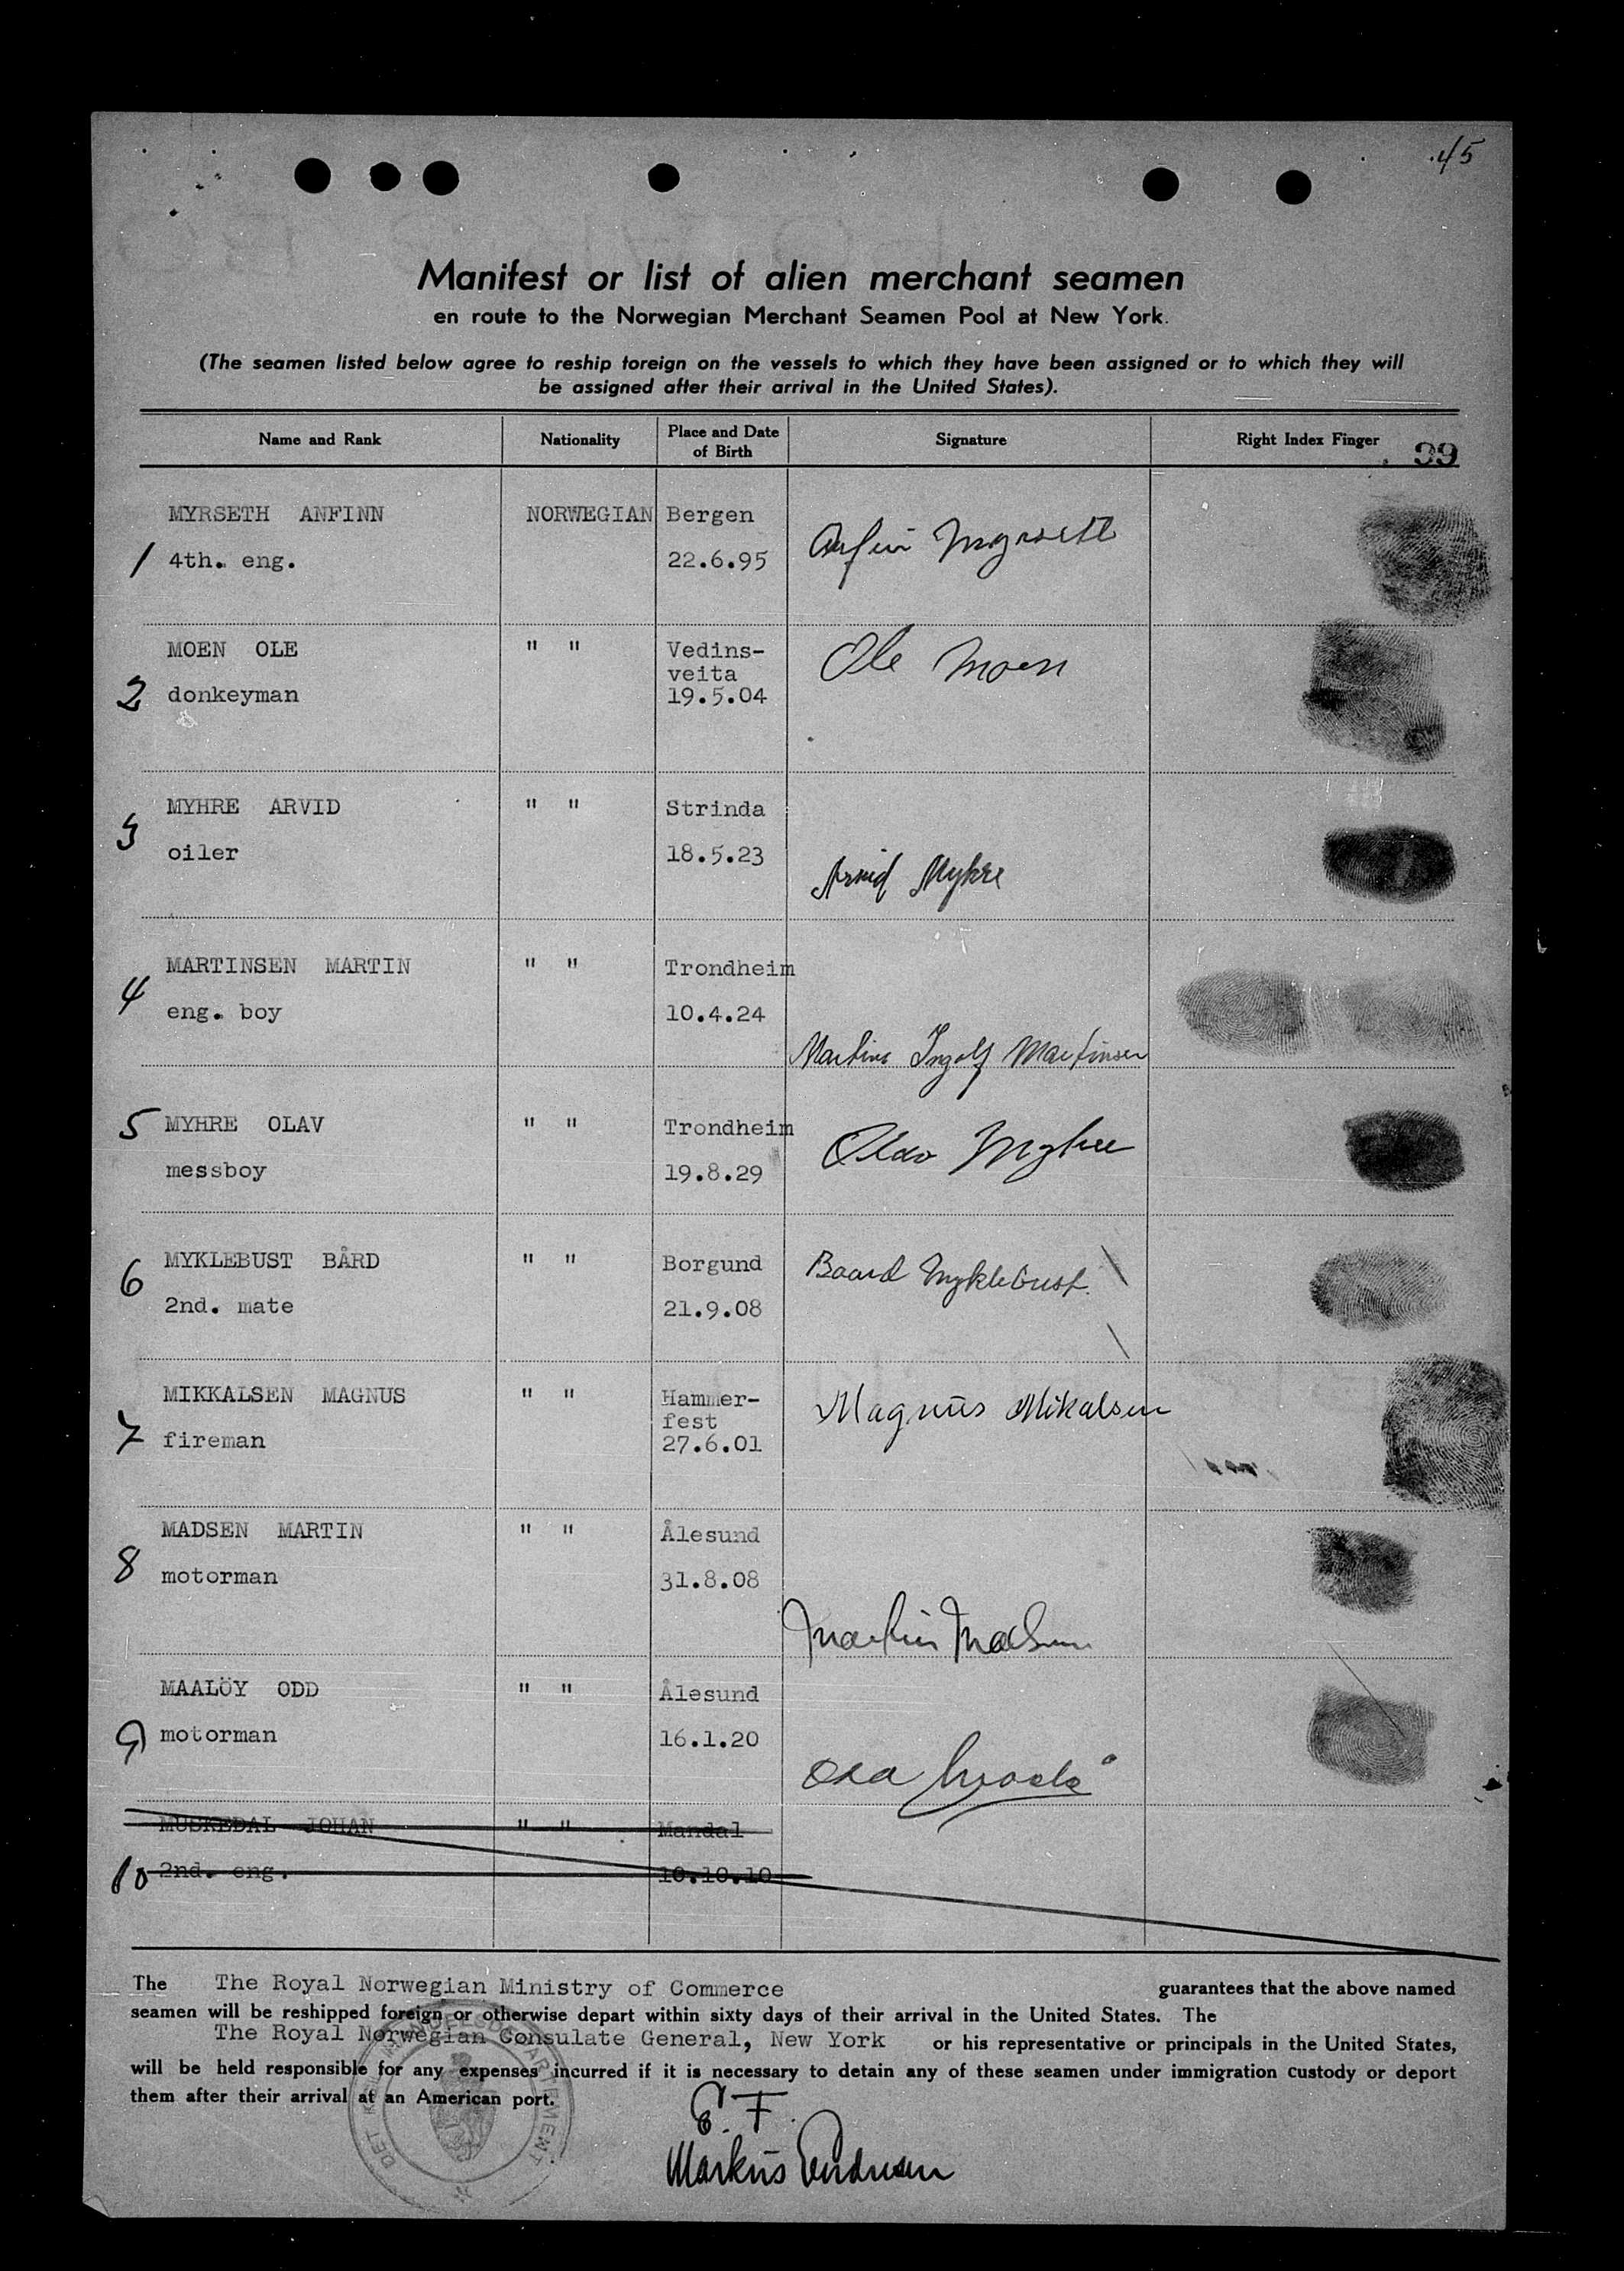 45
Manifest or list of alien merchant seamen
en route to the Norwegian Merchant Seamen Pool at New York.
(The seamen listed below agree to reship foreign on the vessels to which they have been assigned or to which they will
be assigned after their arrival in the United States).
Name and Rank Nationality Place and Date of Birth Signature Right Index Finger 99
MYRSETH ANFINN NORWEGIAN Bergen
1 4th. eng. 22.6.95 Anfin Myrseth
MOEN OLE " " Vedins-
veita Ole Moen
2 donkeyman 19.5.04
MYHRE ARVID " " Strinda
3 oiler 18.5.23
Arvid Myhre
MARTINSEN MARTIN " " Trondheim
4 eng. boy 10.4.24
Martin Ingolf Martinsen
5 MYHRE OLAV " " Trondheim
messboy 19.8.29 Olav Myhre
MYKLEBUST BÅRD " " Borgund Baard Myklebust.
6 2nd. mate 21.9.08
MIKKALSEN MAGNUS " " Hammer-
fest Magnus Mikalsen
7 fireman 27.6.01
MADSEN MARTIN " " Ålesund
8 motorman 31.8.08
Martin Madsen
MAALÖY ODD " " Ålesund
9 motorman 16.1.20
Odd
MUSKEDAL JOHAN " " Mandal
10 2nd. eng. 10.10.10
The The Royal Norwegian Ministry of Commerce guarantees that the above named
seamen will be reshipped foreign or otherwise depart within sixty days of their arrival in the United States. The
The Royal Norwegian Consulate General, New York or his representative or principals in the United States,
will be held responsible for any expenses incurred if it is necessary to detain any of these seamen under immigration custody or deport
them after their arrival at an American port.
E. F.
Markus
DET KGL. HANDELSDEPARTEMENT